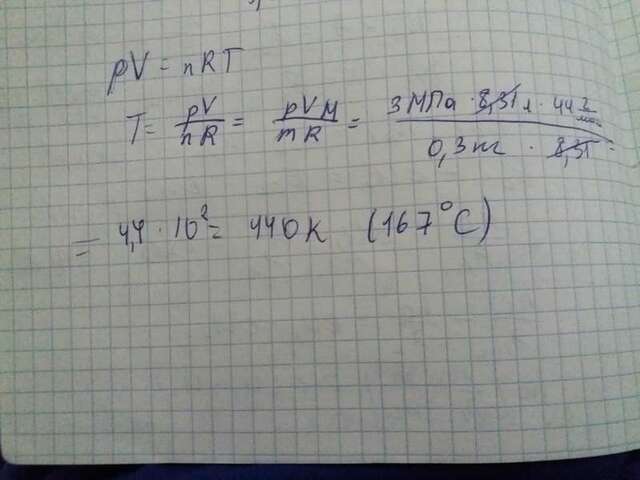 pV = nRT
T = pV/nR = pVM/mR = 3 МПа · 8,31 л · 44 г/моль / 0,3 кг · 8,31 =
= 4,4 · 10² = 440 K (167°C)